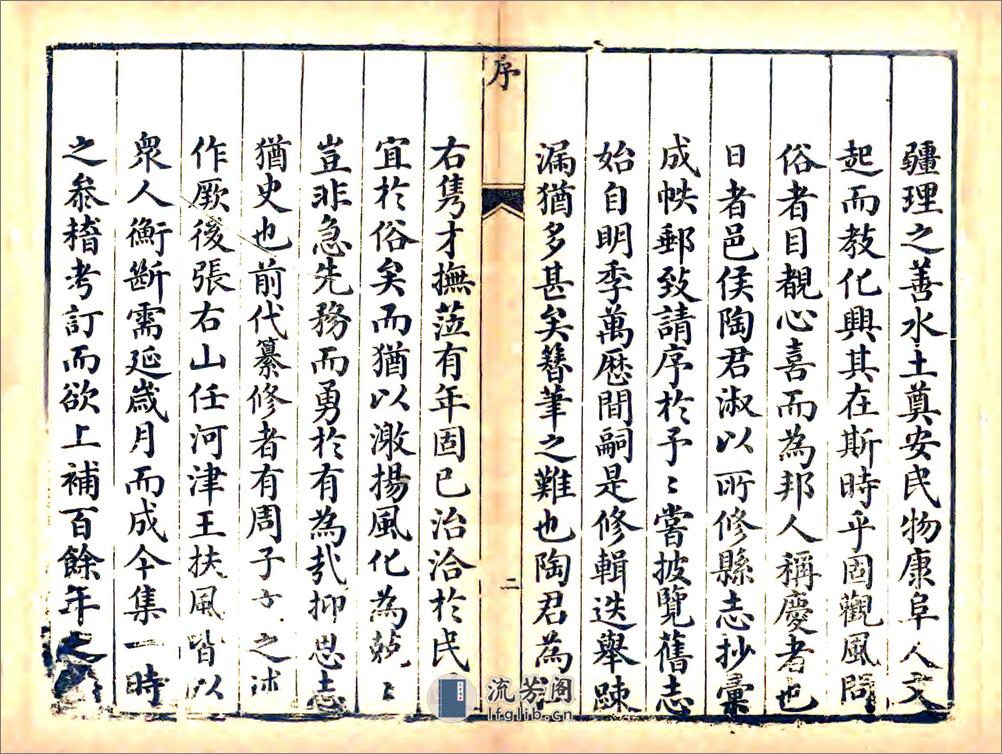 疆理之善水土奠安民物康阜人文
起而教化興其在斯時乎固觀風問
俗者目覩心喜而為邦人稱慶者也
日者邑侯陶君淑以所修縣志抄彙
成帙郵致請序於予〻嘗披覽舊志
始自明季萬厯間嗣是修輯迭舉踈
漏猶多甚矣簪筆之難也陶君為
序
二
右雋才撫蒞有年固已治洽於民
宜於俗矣而猶以激揚風化為兢〻
豈非急先務而勇於有為㢤抑思志
猶史也前代纂修者有周子之述
作厥後張右山任河津王扶風皆以
衆人衡斷需延嵗月而成今集一時
之叅稽考訂而欲上補百餘年之
流芳阁
lfglib.cn